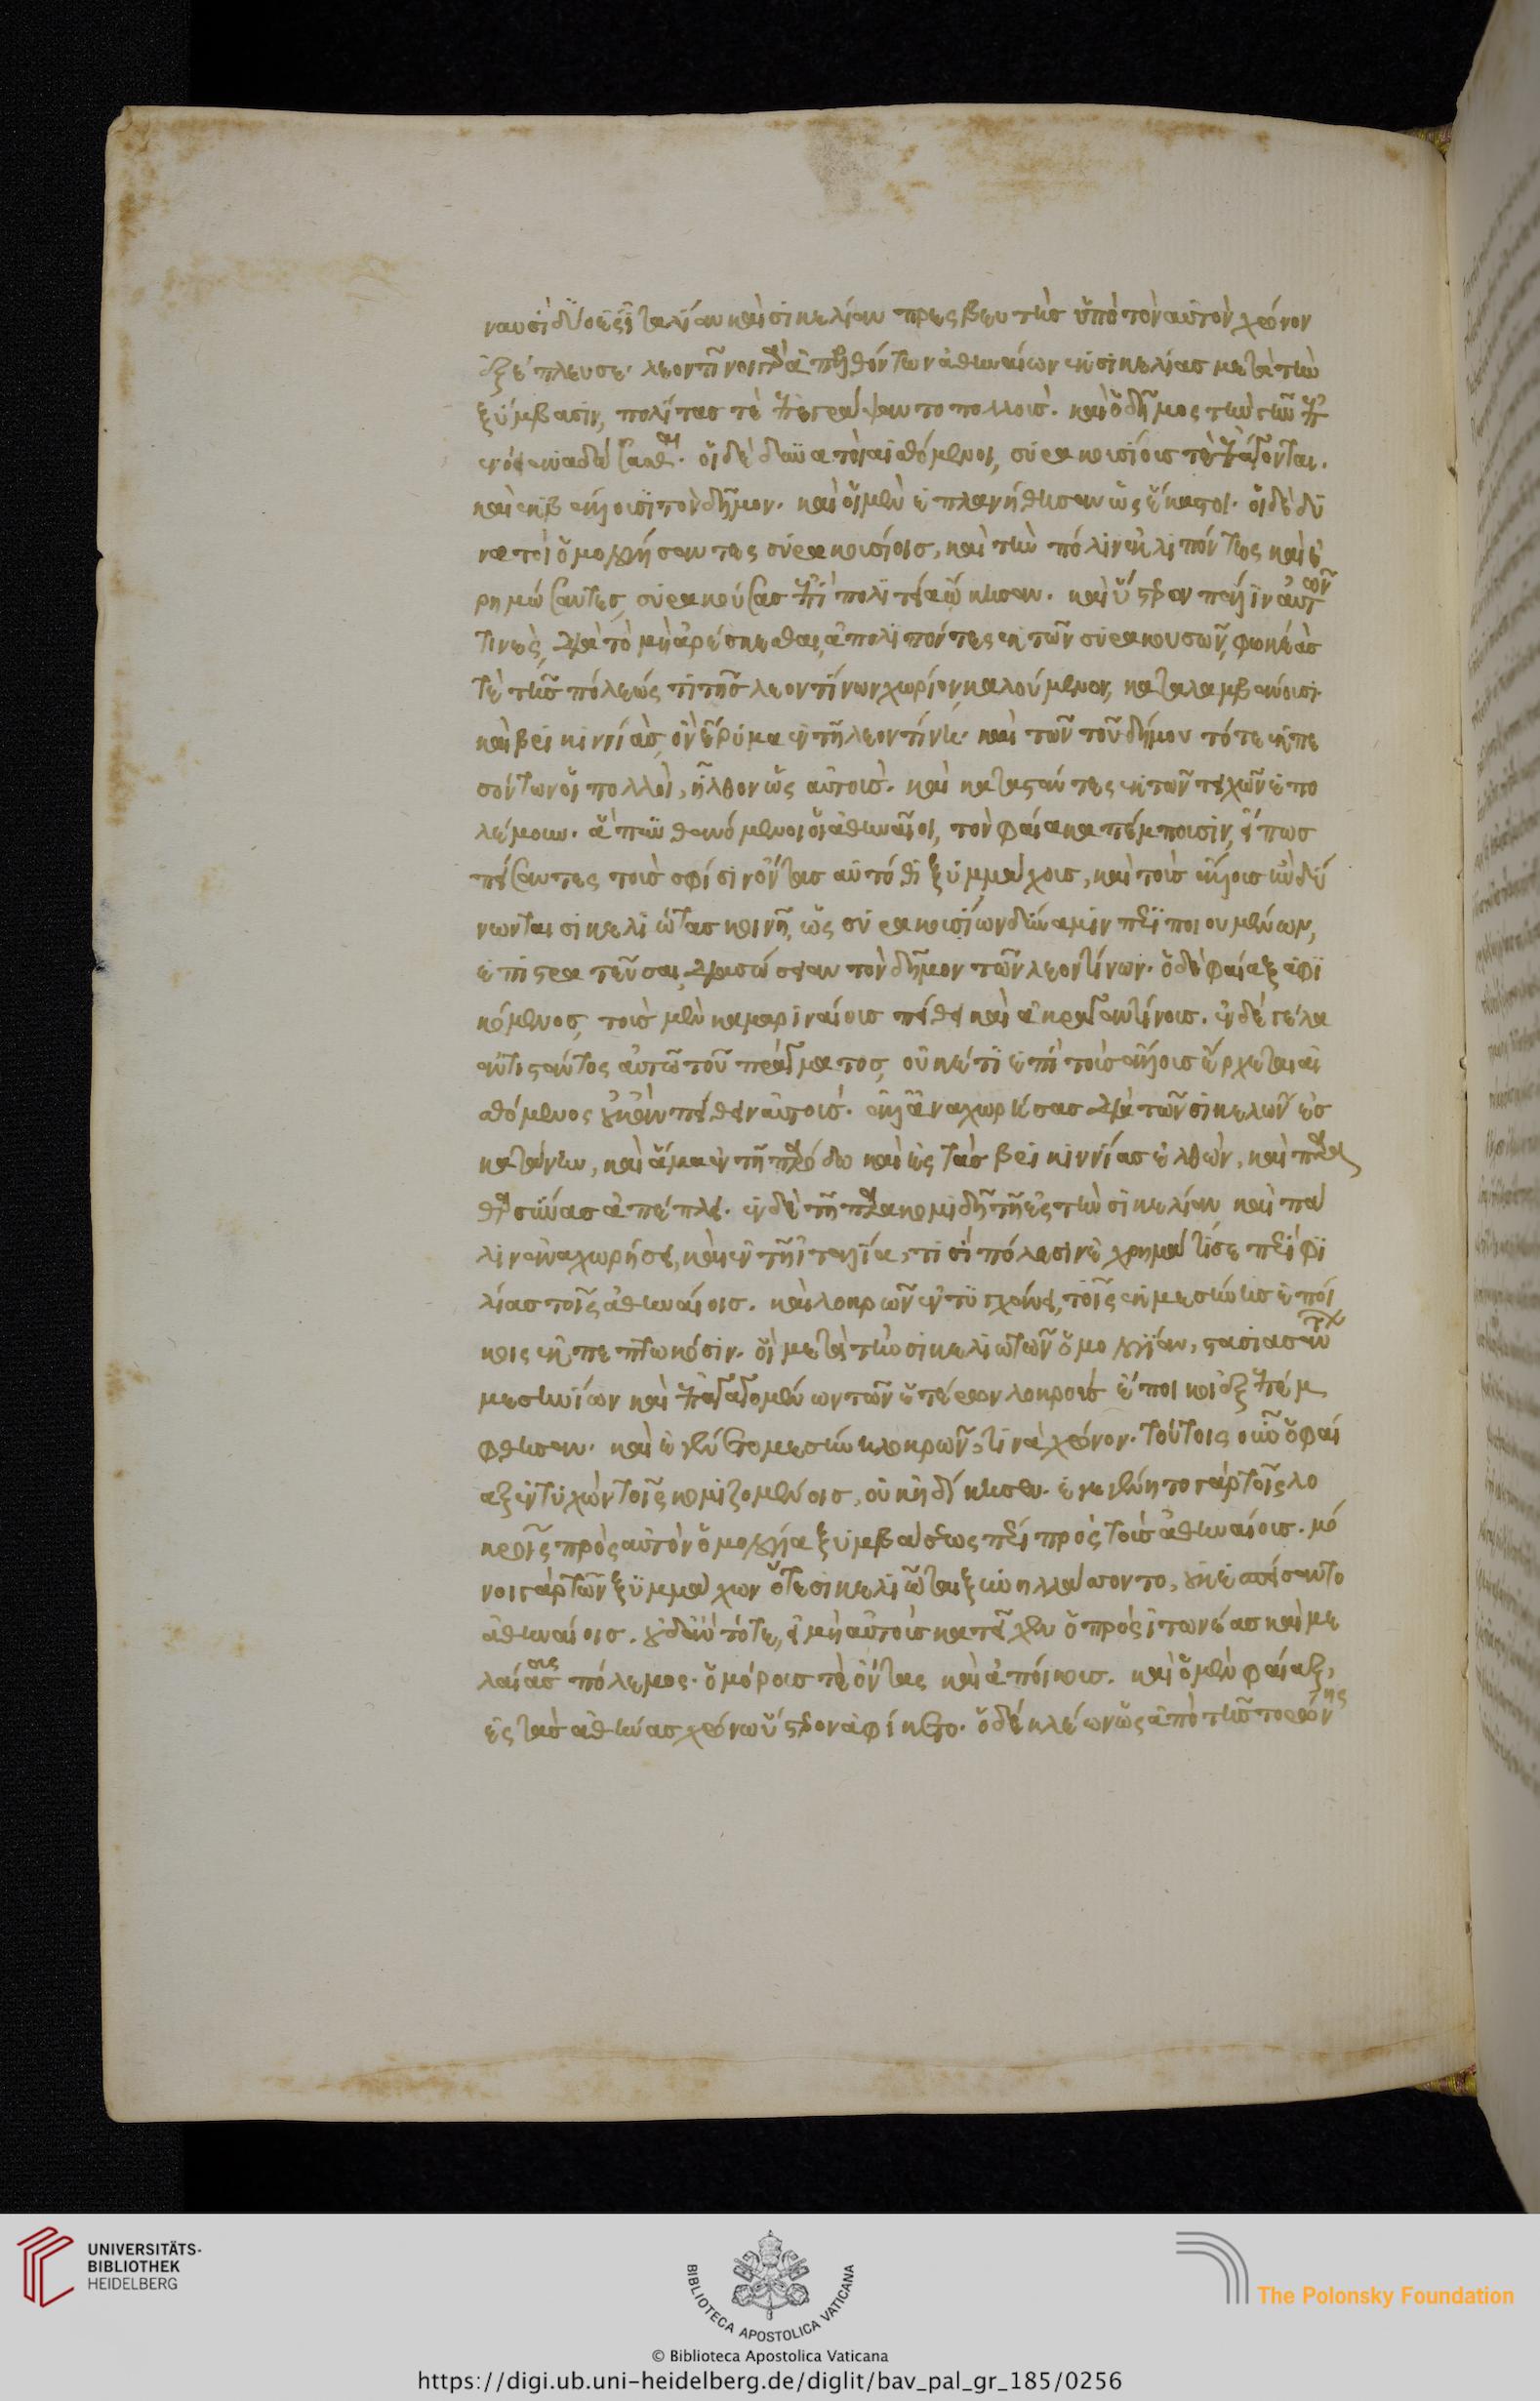 ναυσὶ δύο ἐς ἰταλίαν καὶ σικελίαν πρεσβευτὴς ὑπὸ τὸν αὐτὸν χρόνον
ἐξέπλευσε· λεοντῖνοι γὰρ ἀπελθόντων ἀθηναίων ἐκ σικελίας μετὰ τὴν
ξύμβασιν, πολίτας τὲ ἐπεγράψαντο πολλοὺς. καὶ ὁ δῆμος τὴν γῆν ἐπ
ενόει ἀναδάσασθαι. οἱ δὲ δυνατοὶ αἰσθόμενοι, συρακοσίους τὲ ἐπάγονται.
καὶ ἐκβάλλουσι τὸν δῆμον. καὶ οἱ μὲν ἐπλανήθησαν ὡς ἕκαστοι. οἱ δὲ δυ
νατοὶ ὁμολογήσαντες συρακοσίοις, καὶ τὴν πόλιν ἐκλιπόντες καὶ ἐ
ρημώσαντες, συρακούσας ἐπὶ πολιτεία ᾤκησαν. καὶ ὕστερον πάλιν αὐτῶν
τινὲς, διὰ τὸ μὴ ἀρέσκεσθαι, ἀπολιπόντες ἐκ τῶν συρακουσῶν, φωκέας
τὲ τῆς πόλεώς τι τῆς λεοντίνων χωρίον καλούμενον, καταλαμβάνουσι.
καὶ βρικιννίας, ὂν ἔρυμα ἐν τῆ λεοντίνη. καὶ τῶν τοῦ δήμου τότε ἐκπε
σόντων οἱ πολλοὶ, ἦλθον ὡς αὐτοὺς. καὶ καταστάντες ἐκ τῶν τειχῶν ἐπο
λέμουν. ἃ πυνθανόμενοι οἱ ἀθηναῖοι, τὸν φαίακα πέμπουσιν, εἴ πως
πείσαντες τοὺς σφίσιν ὄντας αὐτόθι ξυμμάχους, καὶ τοὺς ἄλλους ἢν δύ
νωνται σικελιώτας κοινῆ, ὡς συρακοσίων δύναμιν περιποιουμένων,
ἐπιστρατεῦσαι, διασώσειαν τὸν δῆμον τῶν λεοντίνων. ὁ δὲ φαίαξ ἀφι
κόμενος, τοὺς μὲν καμαριναίους πείθει καὶ ἀκραγαντίνους. ἐν δὲ γέλα
ἀντιστάντος αὐτῶ τοῦ πράγματος, οὐκέτι ἐπὶ τοὺς ἄλλους ἔρχεται αἰ
σθόμενος οὐκ ἂν πείθειν αὐτοὺς. ἀλλ' ἀναχωρήσας διὰ τῶν σικελῶν ἐς
κατάνην, καὶ ἅμα ἐν τῆ παρόδω καὶ ἐς τὰς βρικιννίας ἐλθὼν, καὶ παρα
θαρσύνας ἀπέπλει. ἐν δὲ τῆ παρακομιδῆ τῆ ἐς τὴν σικελίαν καὶ πά
λιν ἀναχωρήσει, καὶ ἐν τῆ ἰταλία, τισὶ πόλεσιν ἐχρημάτισε περὶ φι
λίας τοῖς ἀθηναίοις. καὶ λοκρῶν ἐντυγχάνει, τοῖς ἐκ μεσσήνης ἐποί
κοις ἐκπεπτωκόσιν. οἳ μετὰ τὴν σικελιωτῶν ὁμολογίαν, στασιασάντων
μεσηνίων καὶ ἐπαγαγομένων τῶν ἑτέρων λοκροὺς ἔποικοι ἐξεπέμ
φθησαν. καὶ ἐγένετο μεσσήνη λοκρῶν τινὰ χρόνον. τούτοις οὖν ὁ φαί
αξ ἐντυχὼν τοῖς κομιζομένοις, οὐκ ἠδίκησεν. ἐγεγένητο γὰρ τοῖς λο
κροῖς πρὸς αὐτὸν ὁμολογία ξυμβάσεως περὶ πρὸς τοὺς ἀθηναίους. μό
νοι γὰρ τῶν ξυμμάχων ὅτε σικελιῶται ξυνηλλάσσοντο, οὐκ ἐσπείσαντο
ἀθηναίοις. οὐδ' ἂν τότε, εἰ μὴ αὐτοὺς κατεῖχεν ὁ πρὸς ἰτωνέας καὶ με
λαίους πόλεμος. ὁμόρους τὲ ὄντας καὶ ἀποίκους. καὶ ὁ μὲν φαίαξ,
ἐς τὰς ἀθήνας χρόνω ὕστερον ἀφίκετο. ὁ δὲ κλέων ὡς ἀπὸ τῆς τορώνης
UNIVERSITÄTS-
BIBLIOTHEK
HEIDELBERG
BIBLIOTECA APOSTOLICA VATICANA
The Polonsky Foundation
© Biblioteca Apostolica Vaticana
https://digi.ub.uni-heidelberg.de/diglit/bav_pal_gr_185/0256